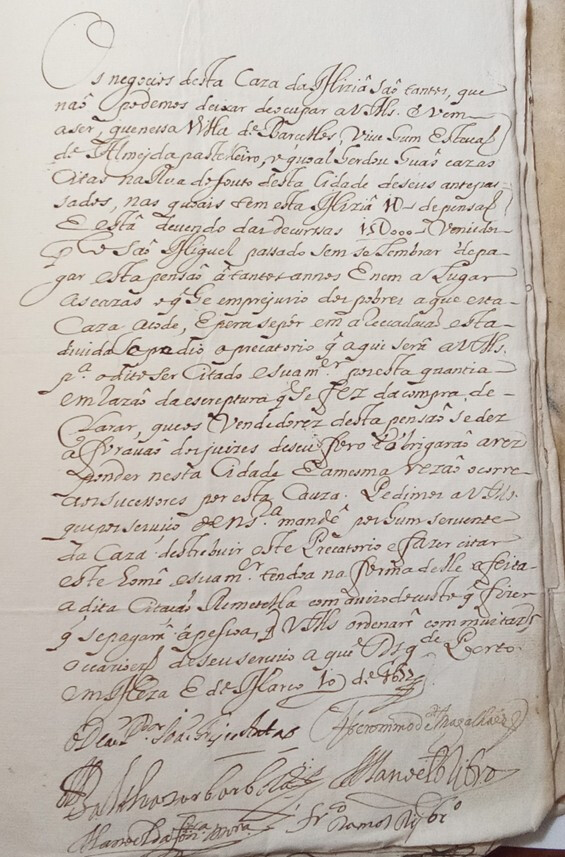 Os negocios desta Caza da Mizia são tantos, que
não podemos deixar de ocupar a VMs. E vem
a ser, que nessa Villa de Barcellos, Vive hum Estevaõ
de Almejda pasteleiro, o qual herdou huãs cazas
Citas na Rua do souto desta Cidade de seus antepas-
sados, nas quais tem esta Mizia de pensaõ
E está devendo das decursas 15000 Vencidos
São Miguel passado sem se lembrar de pa-
gar esta pensão á tantos annos E nem a Lugar
as cazas o q he em prejuizo dos pobres a que esta
Caza acode, E pera se pôr em a Recadaçaõ esta
divida o precatorio q aqui será a VMs.
pª o dito ser Citado e sua mer por esta quantia
em Razão da escreptura q se fez da compra, de-
Clarar, que os Vendedores desta pensão se dez
a foravão dos juizes de seu foro E obrigarão a rez
ponder nesta Cidade E a mesma rezão ocorre
aos sucessores por esta Cauza. Pedimos a VMs.
que por serviço de N sª mande por hum servente
da Caza, destrebuir este Precatorio e fazer citar
este home e sua mer tendoa na forma delle e feita
a dita Citação Remetella com avizo do custo q fizer
q se pagará á pessoa, q VMs ordenarẽ com muitas
occazioẽs de seu serviço a que Ds gde Porto
em Meza E de Março 10 de 1652
Hieronimo de Magalhães
Balthazar barboza Manoel Ribro
Manoel da fonca Frco Ramos Ribro